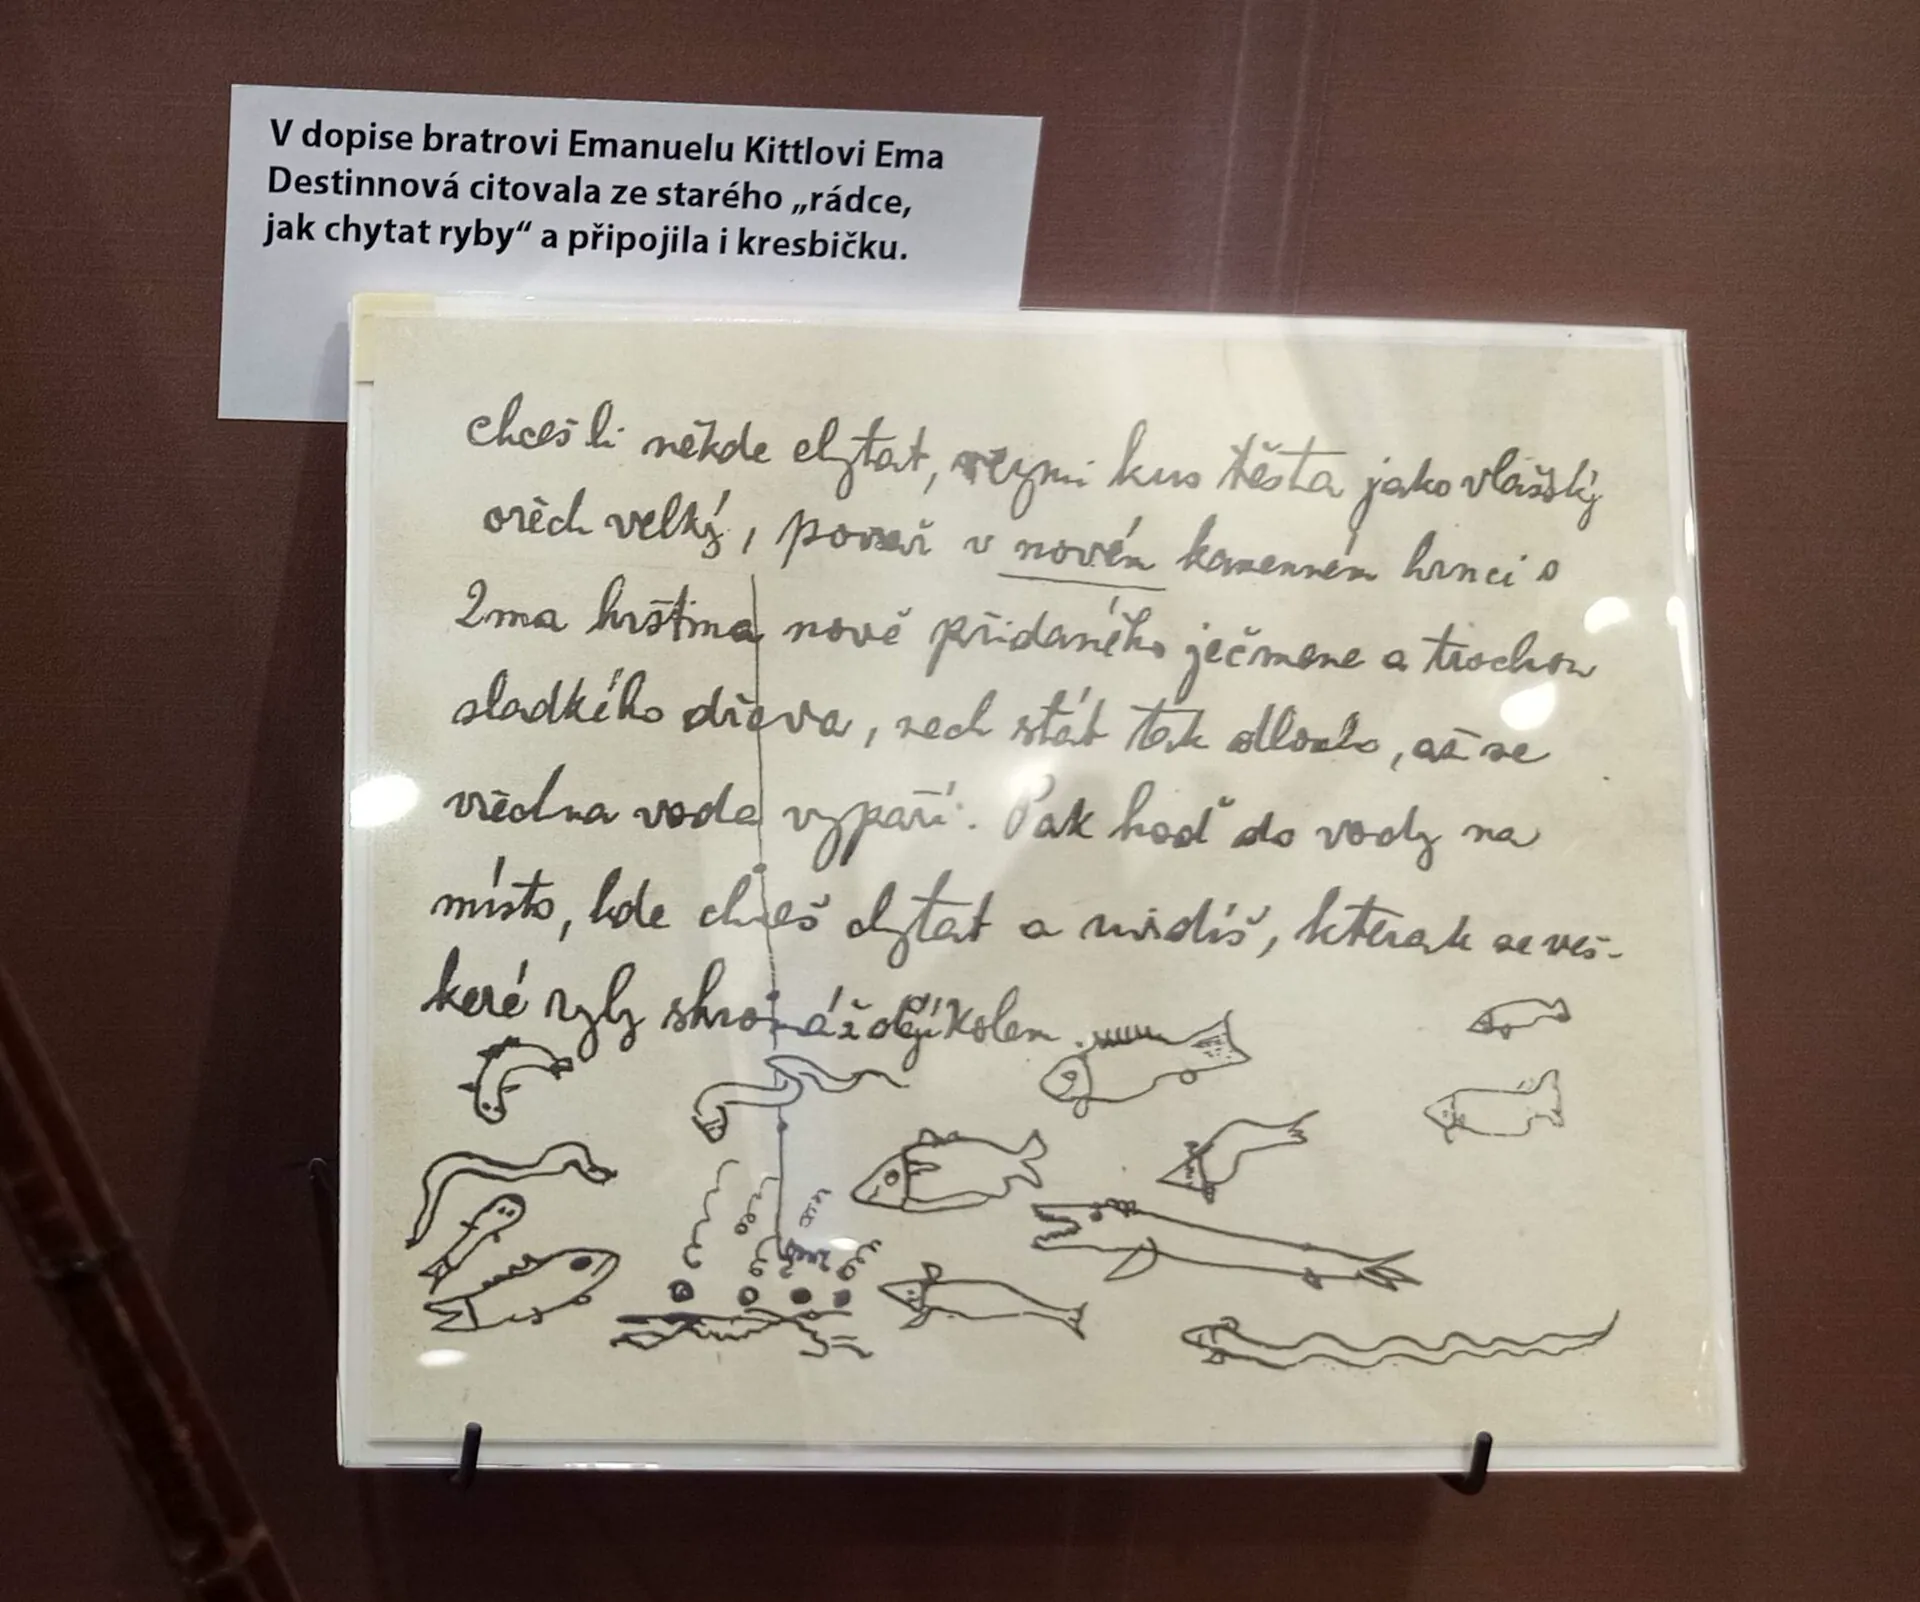 V dopise bratrovi Emanuelu Kittlovi Ema
Destinnová citovala ze starého „rádce,
jak chytat ryby“ a připojila i kresbičku.
chceš li někde chytat, vezmi kus těsta jako vlašský
ořech velký, povař v novém kamenném hrnci s
2ma hrstma nově přidaného ječmene a trochou
sladkého dřeva, nech stát tak dlouho, až se
všechna voda vypaří. Pak hoď do vody na
místo, kde chceš chytat a uvidíš, kterak se veš-
keré ryby shromáždějí kolem.